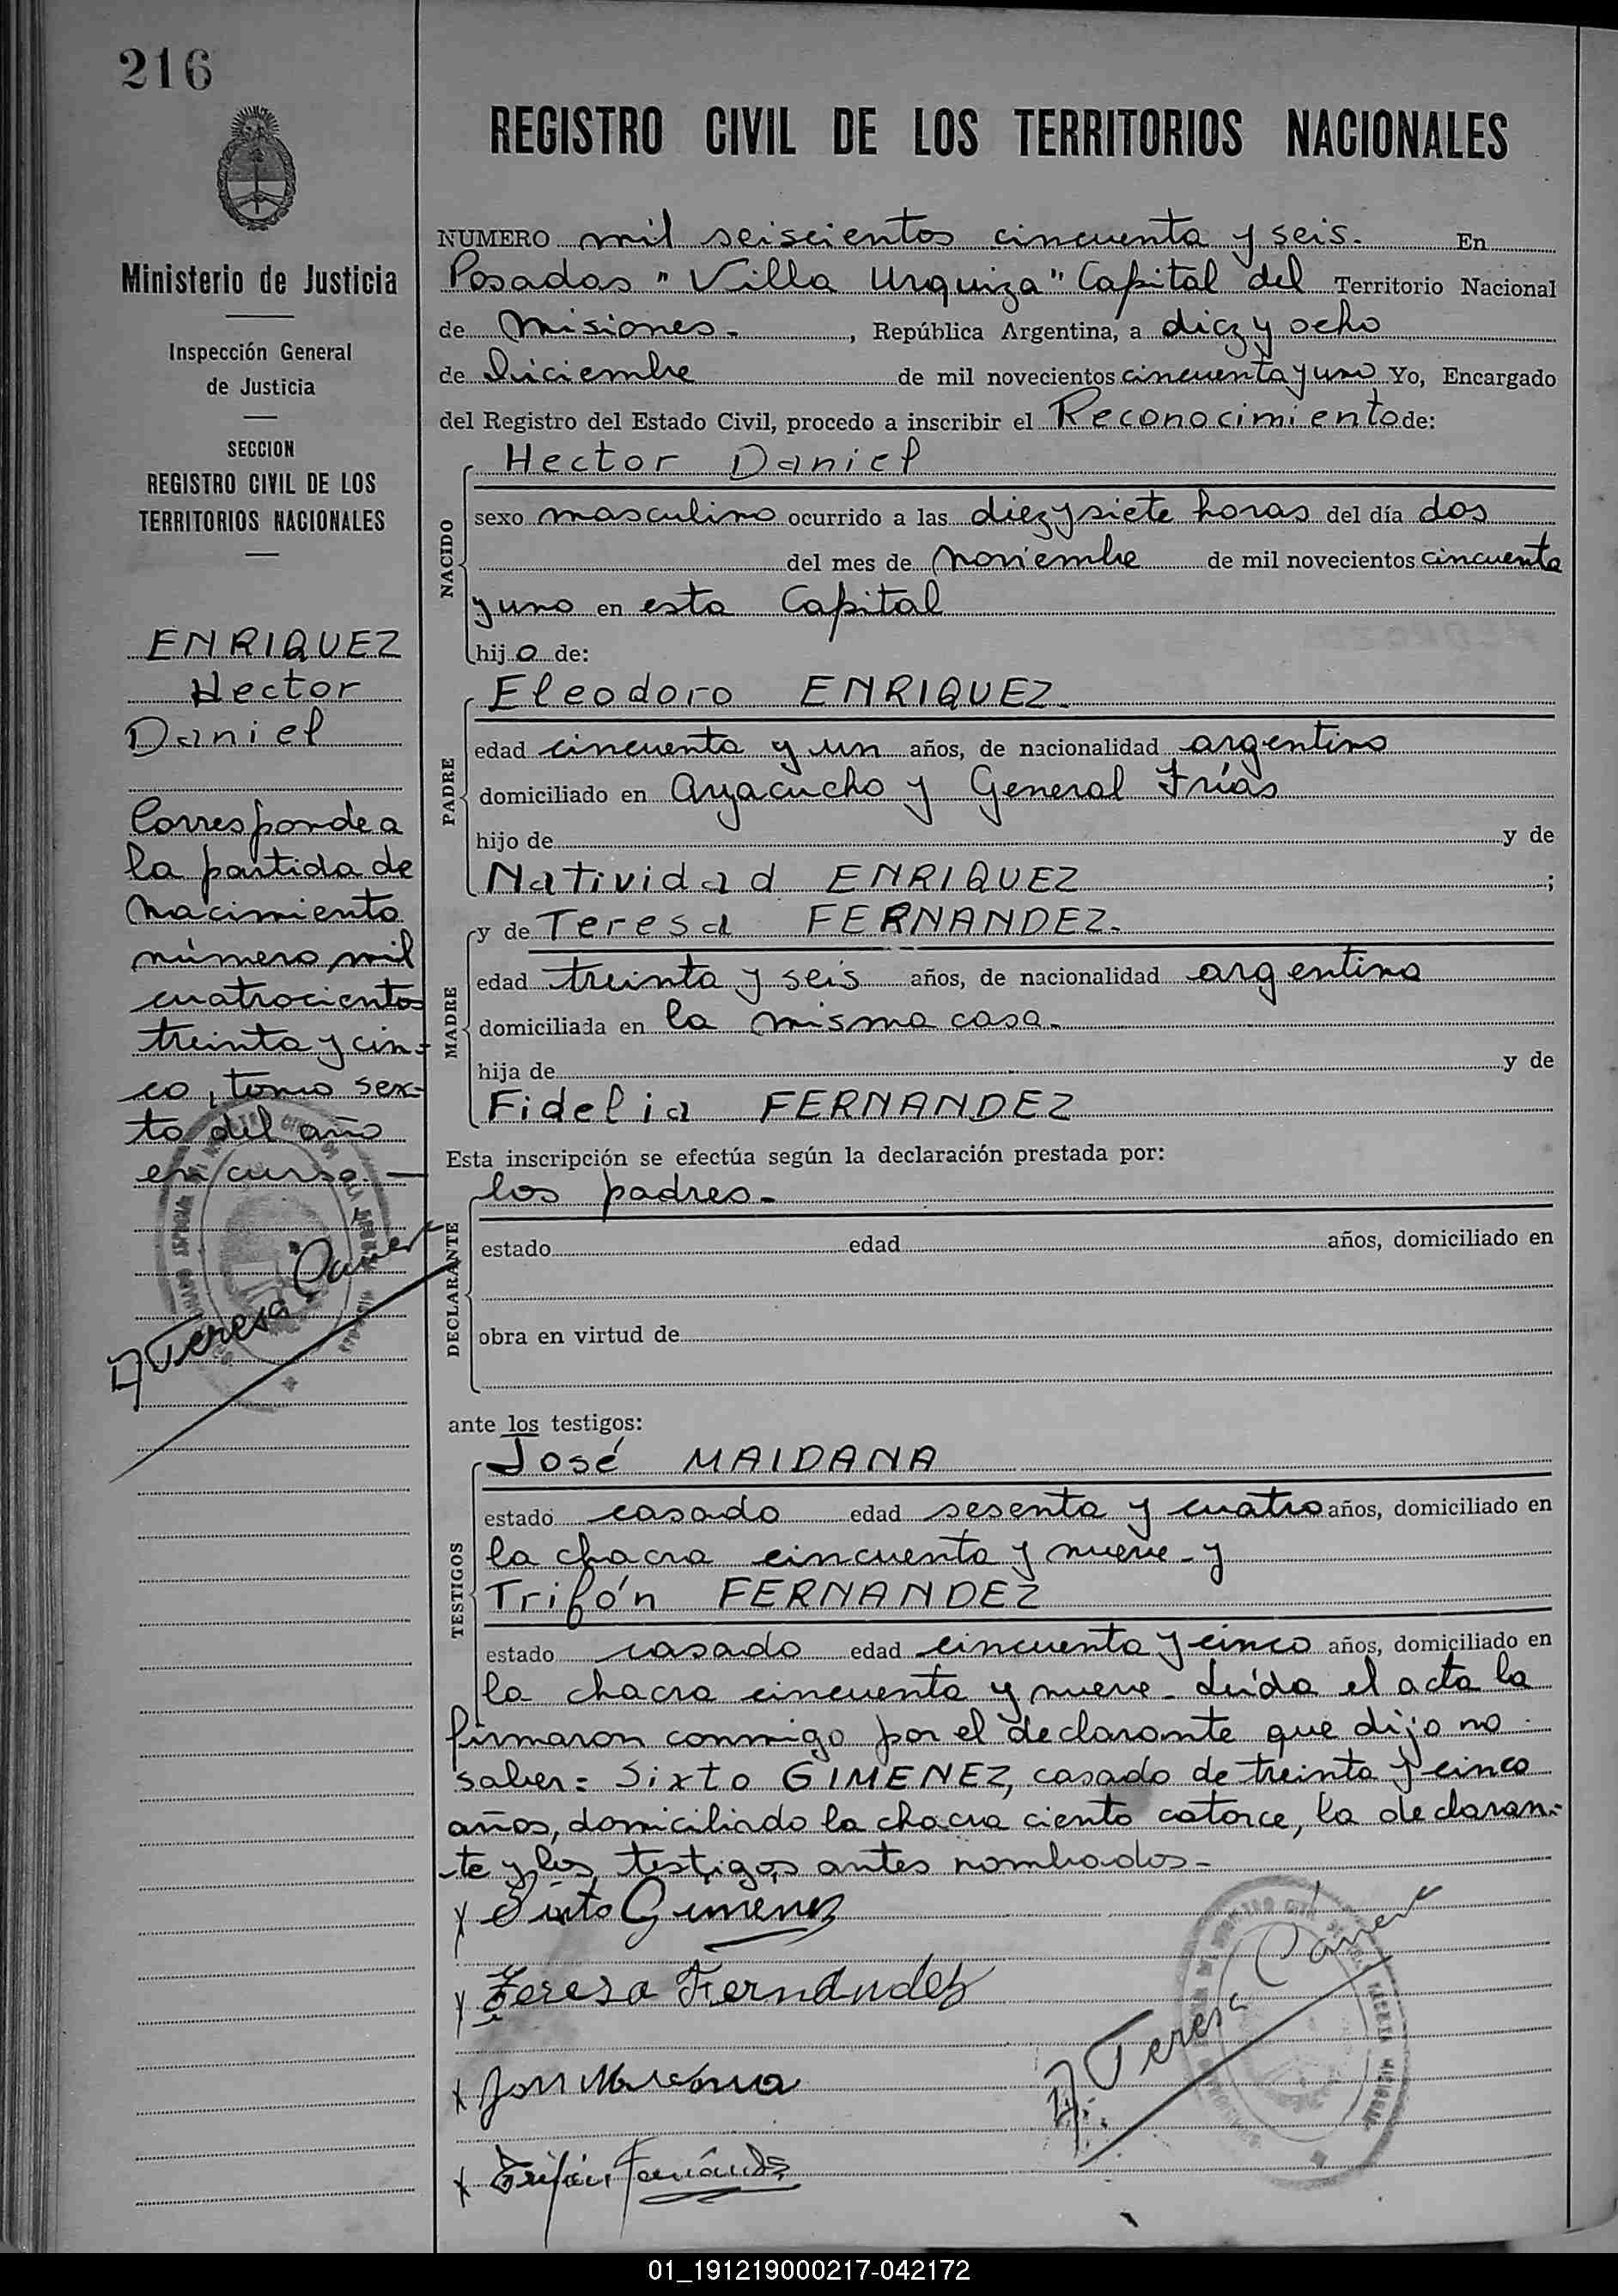 216
Ministerio de Justicia
Inspección General
de Justicia
SECCION
REGISTRO CIVIL DE LOS
TERRITORIOS NACIONALES
ENRIQUEZ
Hector
Daniel
Corresponde a
la partida de
nacimiento
número mil
cuatrocientos
treinta y cin-
co, tomo sex-
to del año
en curso. —
Teresa
REGISTRO CIVIL DE LOS TERRITORIOS NACIONALES
NUMERO mil seiscientos cincuenta y seis. En
Posadas "Villa Urquiza" Capital del Territorio Nacional
de Misiones-, República Argentina, a diez y ocho
de Diciembre de mil novecientos cincuenta y uno Yo, Encargado
del Registro del Estado Civil, procedo a inscribir el Reconocimiento de:
Hector Daniel
NACIDO
sexo masculino ocurrido a las diez y siete horas del día dos
del mes de noviembre de mil novecientos cincuenta
y uno en esta Capital
hijo de:
Eleodoro ENRIQUEZ-
PADRE
edad cincuenta y un años, de nacionalidad argentino
domiciliado en Ayacucho y General Frías
hijo de y de
Natividad ENRIQUEZ ;
y de Teresa FERNANDEZ-
MADRE
edad treinta y seis años, de nacionalidad argentina
domiciliada en la misma casa-
hija de y de
Fidelia FERNANDEZ
Esta inscripción se efectúa según la declaración prestada por:
los padres-
DECLARANTE
estado edad años, domiciliado en
obra en virtud de
ante los testigos:
José MAIDANA
TESTIGOS
estado casado edad sesenta y cuatro años, domiciliado en
la chacra cincuenta y nueve- y
Trifón FERNANDEZ
estado casado edad cincuenta y cinco años, domiciliado en
la chacra cincuenta y nueve- Leída el acta la
firmaron conmigo por el declarante que dijo no
saber= Sixto GIMENEZ, casado de treinta y cinco
años, domiciliado la chacra ciento catorce, la declaran-
-te y los testigos antes nombrados-
x Sixto Gimenez
x Teresa Fernández
x
x Trifón Fernández
Teresa
01_191219000217-042172